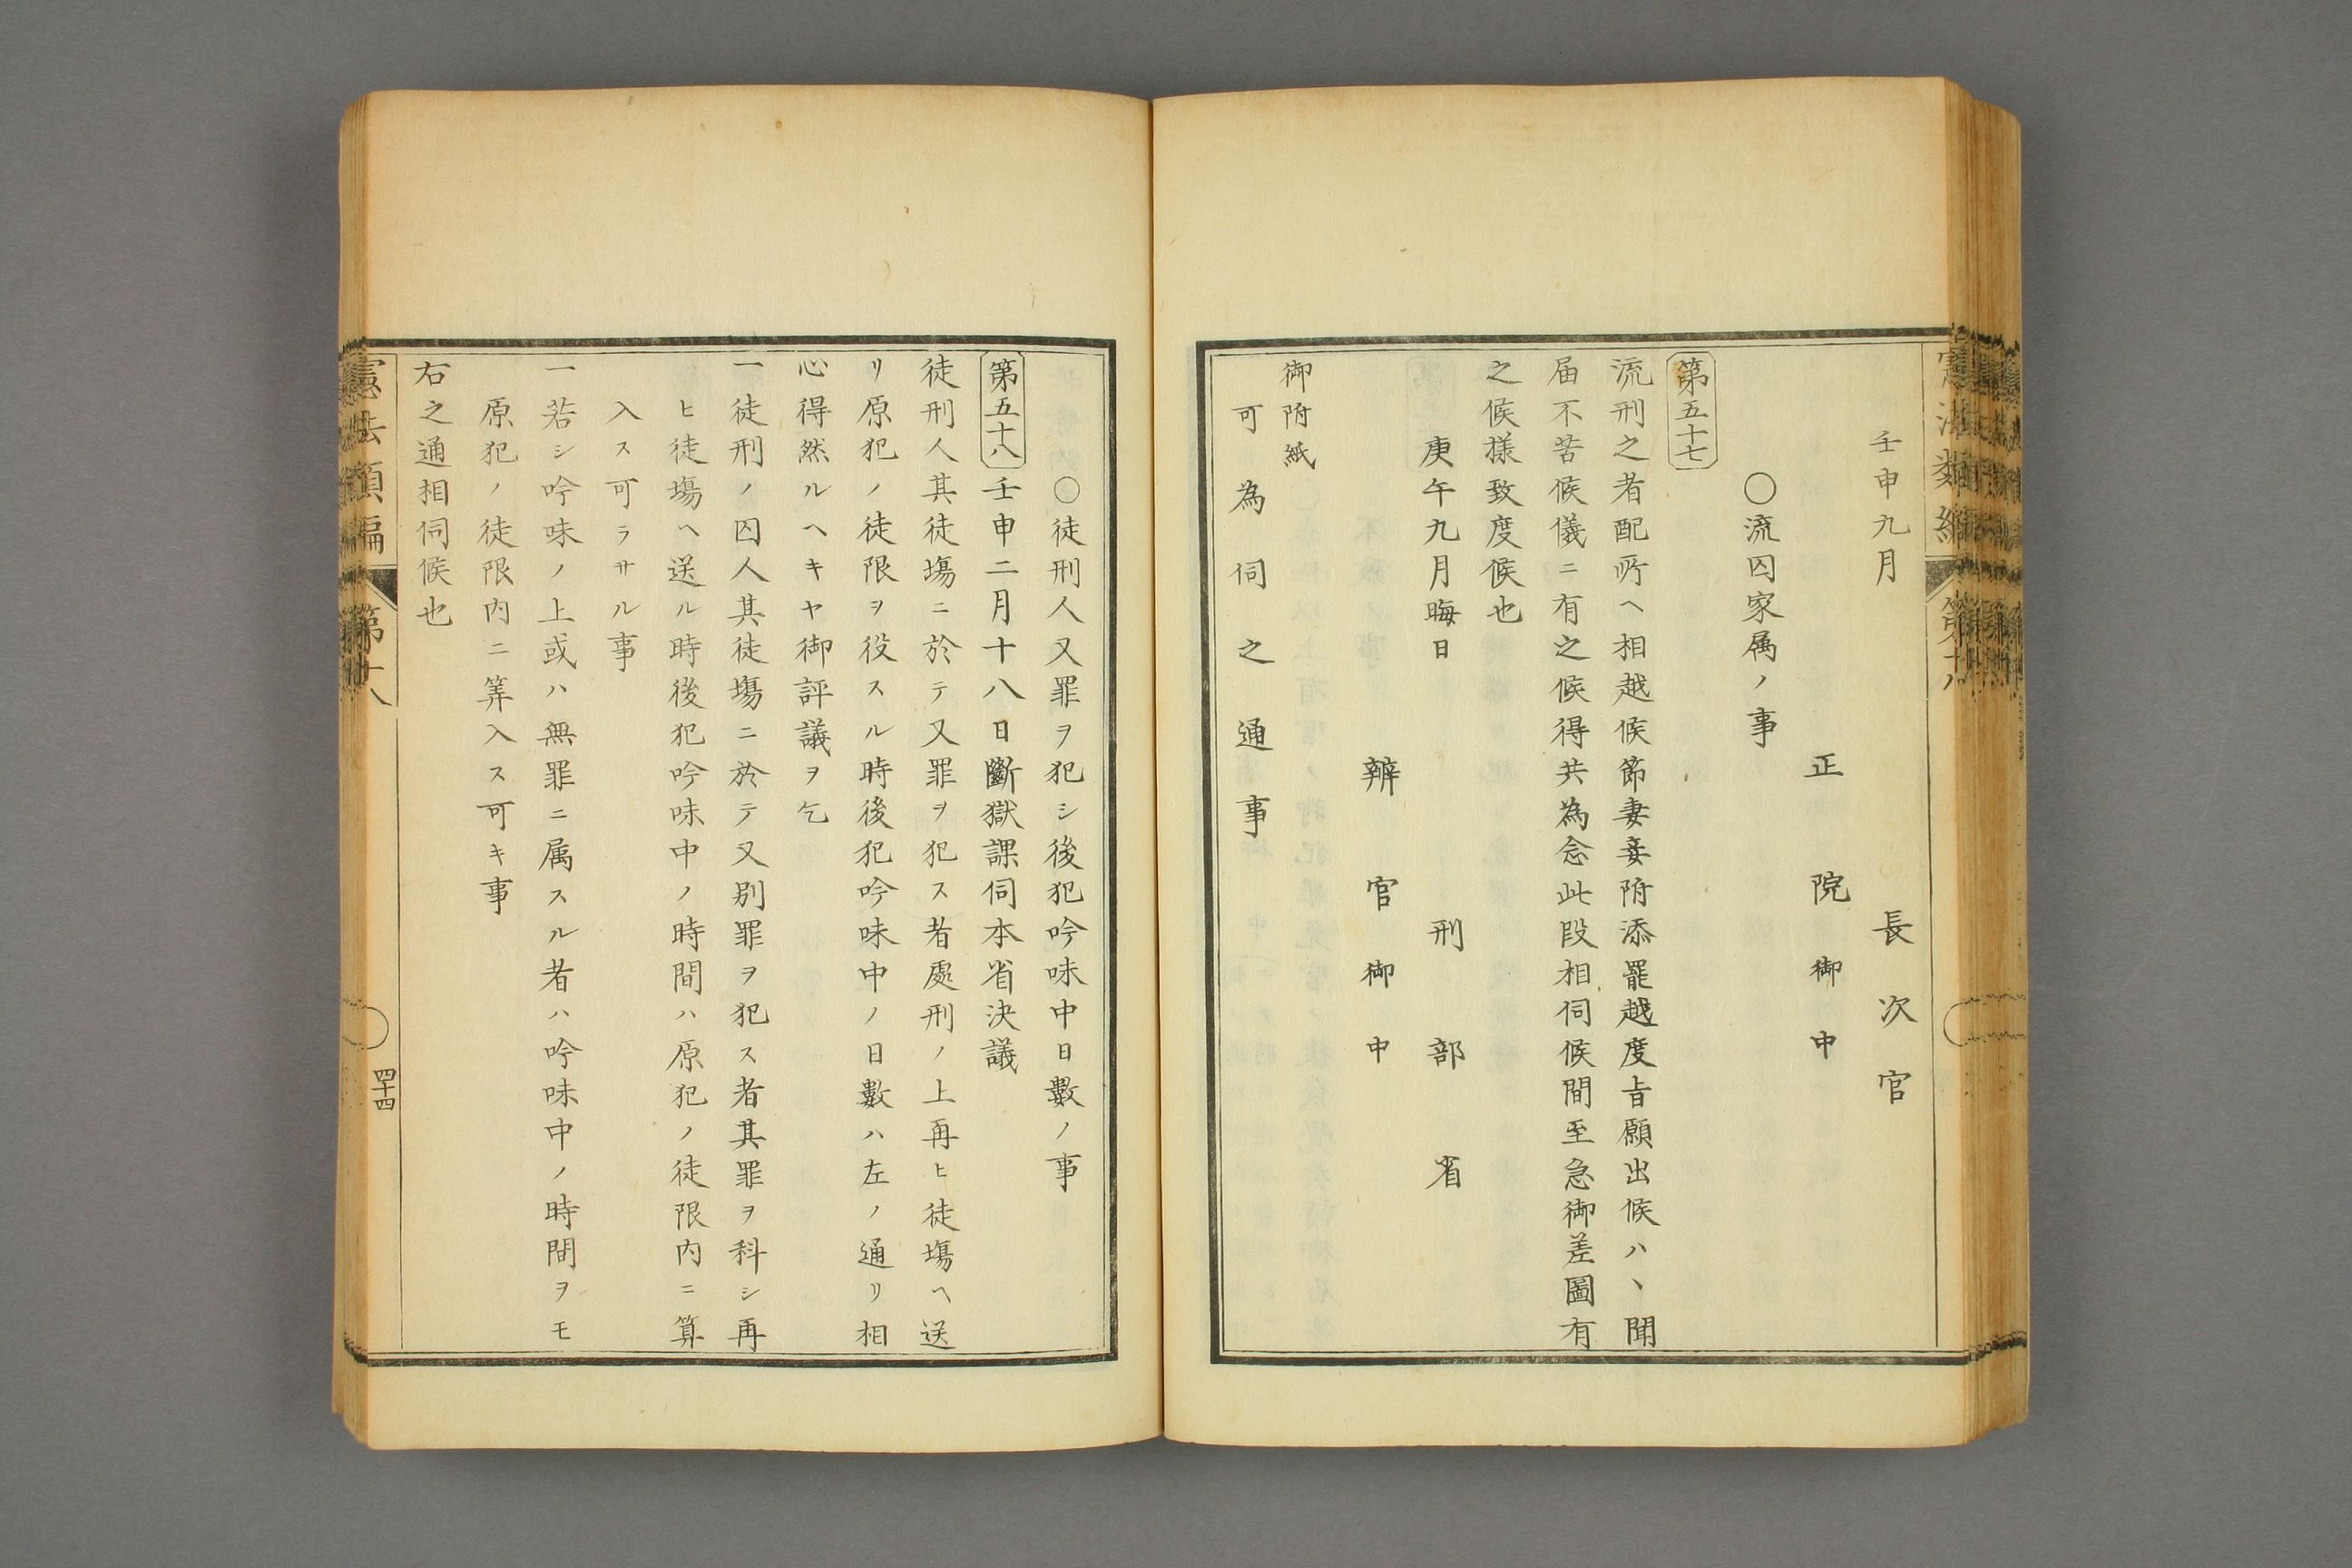 壬申九月
長次官
正院御中
○流囚家属ノ事
第五十七
流刑之者配所ヘ相越候節妻妾附添罷越度旨願出候ハヽ聞
届不苦候儀ニ有之候得共為念此段相伺候間至急御差圖有
之候様致度候也
庚午九月晦日
刑部省
辨官御中
御附紙
可為伺之通事
○徒刑人又罪ヲ犯シ後犯吟味中日數ノ事
第五十八 壬申二月十八日斷獄課伺本省決議
徒刑人其徒塲ニ於テ又罪ヲ犯ス者處刑ノ上再ヒ徒塲ヘ送
リ原犯ノ徒限ヲ役スル時後犯吟味中ノ日數ハ左ノ通リ相
心得然ルヘキヤ御評議ヲ乞
一徒刑ノ囚人其徒塲ニ於テ又別罪ヲ犯ス者其罪ヲ科シ再
ヒ徒塲ヘ送ル時後犯吟味中ノ時間ハ原犯ノ徒限内ニ算
入ス可ラサル事
一若シ吟味ノ上或ハ無罪ニ属スル者ハ吟味中ノ時間ヲモ
原犯ノ徒限内ニ筭入ス可キ事
右之通相伺候也
憲法類編 第十八
四十四